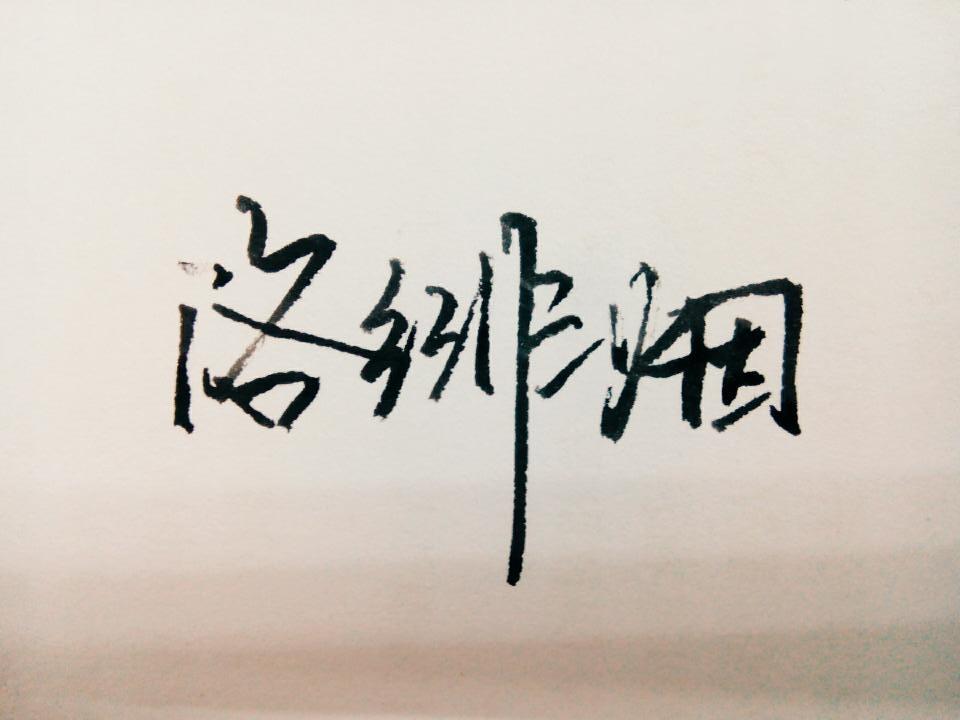 洛绯烟